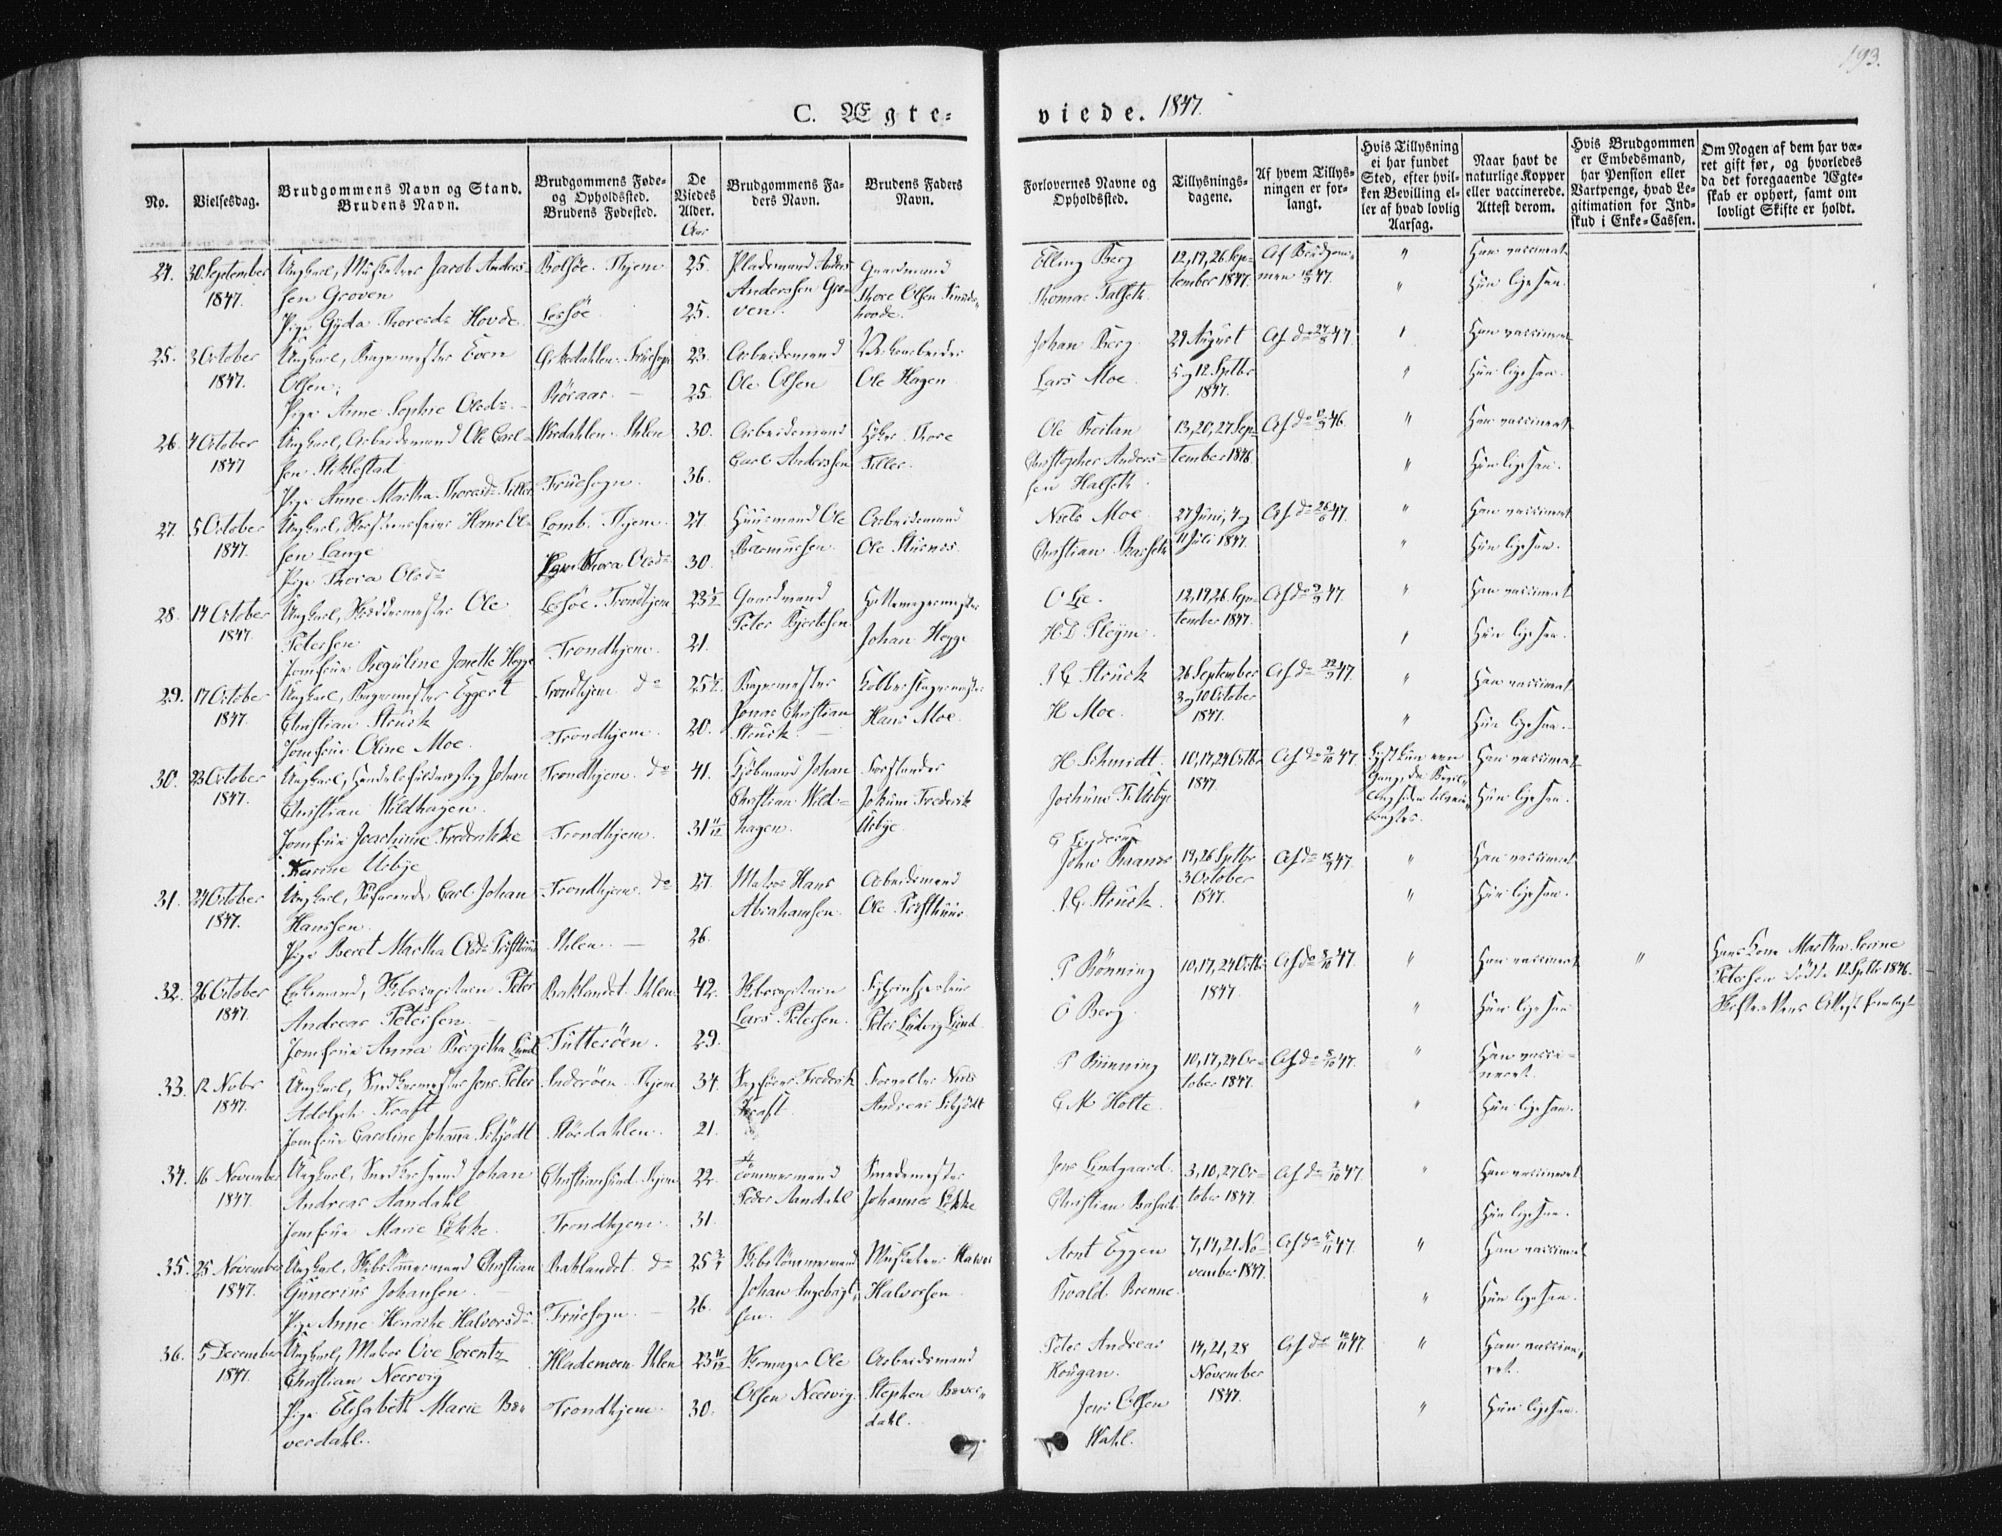 193.
C. Ægte-
viede. 1847.
No.
Vielsesdag.
Brudgommens Navn og Stand.
Brudens Navn.
Brudgommens Føde-
og Opholdssted.
Brudens Fødested.
De
Viedes
Alder.
Aar
Brudgommens Fa-
ders Navn.
Brudens Faders
Navn.
Forlovernes Navne og
Opholdssted.
Tillysnings-
dagene.
Af hvem Tillys-
ningen er for-
langt.
Hvis Tillysning
ei har fundet
Sted, efter hvil-
ken Bevilling el-
ler af hvad lovlig
Aarsag.
Naar havt de
naturlige Kopper
eller vaccinerede.
Attest derom.
Hvis Brudgommen
er Embedsmand,
har Pension eller
Vartpenge, hvad Le-
gitimation for Ind-
skud i Enke-Cassen.
Om Nogen af dem har væ-
ret gift før, og hvorledes
da det foregaaende Ægte-
skab er ophørt, samt om
lovligt Skifte er holdt.
24. 30 September
1847.
Ungkarl, Jacob Anders-
sen Groven
Pige Gyda Thoresdr Hovde
Bolsöe. Thjem
Lessöe
25.
25.
Anders
Anderssen Gro-
ven.
Gaardmand
Thore Olsen
Elling Berg
Thomas Talseth
12, 19, 26 Sep-
tember 1847.
Af Brudgom-
men 47.
Han vaccineret
Hun ligesaa.
25. 3 October
1847.
Ungkarl, Bagermester Even
Olsen.
Pige Anne Sophie Olsdr
Röraas
23.
25.
Arbeidsmand
Ole Olsen
Ole Hagen
Johan Berg
Lars Moe.
29 August
5 og 12 Septbr
1847.
Af do 47.
Han vaccineret
Hun ligesaa.
26. 4 October
1847
Ungkarl, Arbeidsmand Ole Carl-
sen Stiklestad
Pige Anne Martha Thoresdr Tiller
Værdahlen. Ihlen
Fruesogn.
30.
36.
Arbeidsmand
Carl Anderssen
Thore
Tiller.
Ole Reitan
Christopher Anders-
sen Halseth
13, 20, 27 Sep-
tember 1846
Af do 46.
Han vaccineret
Hun ligesaa.
27. 5 October
1847.
Ungkarl, Hans Ol-
sen Lange
Pige Thora Olsdr
Lomb. Thjem.
Thora Olsdr
27.
30.
Huusmand Ole
Rasmussen.
Arbeidsmand
Ole
Niels Moe
Christian
27 Juni, 4 og
11 Juli 1847.
Af do 47.
Han vaccineret
Hun ligesaa.
28. 14 October
1847.
Ungkarl, Ole
Petersen
Jomfrue Reguline Jonette Hegge
Lessöe. Trondhjem
Trondhjem.
23 ½
21.
Gaardmand
Peter
Hattemagermester
Johan Hegge
O Lie.
H. D. Sleym.
12, 19, 26 Sep-
tember 1847.
Af do 47.
Han vaccineret
Hun ligesaa.
29. 17 October
1847.
Ungkarl, Bagermester Eggert
Christian Struck
Jomfrue Oline Moe.
Trondhjem do
Trondhjem.
25 ½
20.
Bagermester
Jonas Christian
Struck.
Hans Moe.
J. C. Struck
H Moe.
26 September
3 og 10 October
1847.
Af do 47.
Han vaccineret
Hun ligesaa.
30. 23 October
1847.
Ungkarl, Johan
Christian Wildhagen.
Jomfrue Joachime Frederikke
Karine Usbye
Trondhjem do
Trondhjem.
41.
31 11/12
Kjöbmand Johan
Christian Wild-
hagen.
Jokum Frederik
Usbye.
H Schmidt.
10, 17, 24 Octbr
1847.
Af do 47.
Han vaccineret
Hun ligesaa.
31. 24 October
1847.
Ungkarl, Söfarende Carl Johan
Hanssen.
Pige Beret Martha Olsdr
Trondhjem. do
Ihlen.
27.
26.
Matros Hans
Abrahamsen.
Arbeidsmand
Ole
John
J. C. Struck.
19, 26 Septbr
3 October
1847.
Af do 47.
Han vaccineret
Hun ligesaa.
32. 26 October
1847.
Enkemand, Skibscapitain Peter
Andreas Petersen.
Jomfrue Anna Bergitha Lund
Baklandet. Ihlen
Tutteröen.
42.
29.
Skibscapitain
Lars Petersen.
Peter Ludvig Lund
P Rönning
O Berg.
10, 17, 24 Octbr
1847.
Af do 47.
Han vaccineret
Hun ligesaa
Hans Kone Martha Serine
Petersen döde 12 Septbr 1846.
Skifterettens Attest fremlagt
33. 12 Novbr
1847.
Ungkarl, Snedkermester Jens Peter
Adolph Kraft
Jomfrue Caroline Johanna Schjödt
Inderöen. Thjem
Stördahlen.
34.
21.
Frederik
Kraft
Niels
Andreas Schjödt
P Rönning
C. M Holte.
10, 17, 24 Oc-
tober 1847.
Af do 47.
Han vacci-
neret.
Hun ligesaa.
34. 16 November
1847.
Ungkarl, Snedkersvend Johan
Andreas Aandahl
Jomfrue Marie Lökke.
Christiansund. Thjem
Trondhjem.
22.
31.
Tömmermand
Peder Aandahl
Smedemester
Johannes Lökke
Jens Lindgaard.
Christian
3, 10, 27 Oc-
tober 1847.
Af do 47.
Han vaccineret
Hun ligesaa.
35. 25 November
1847.
Ungkarl, Skibstömmermand Christian
Gunerius Johansen.
Pige Anne Henrikke Halvorsdr
Baklandet do
Fruesogn.
25
26.
Skibstömmermand
Johan Ingebrigt-
sen.
Halvor
Halvorsen.
Arnt Eggen
Roald Brenne.
7, 14, 21 No-
vember 1847.
Af do 47.
Han vaccineret
Hun ligesaa.
36. 5 December
1847.
Ungkarl, Matros Ove Lorentz
Christian Neervig
Pige Elisabeth Marie Be-
verdahl.
Hlademoen. Ihlen
Trondhjem.
23 11/12
30.
Skomager Ole
Olsen Neervig.
Arbeidsmand
Stephen Bever-
dahl.
Peter Andreas
Kougan.
Jens Olsen
Wahl.
14, 21, 28
November
1847.
Af do 47.
Han vaccine-
ret.
Hun ligesaa.